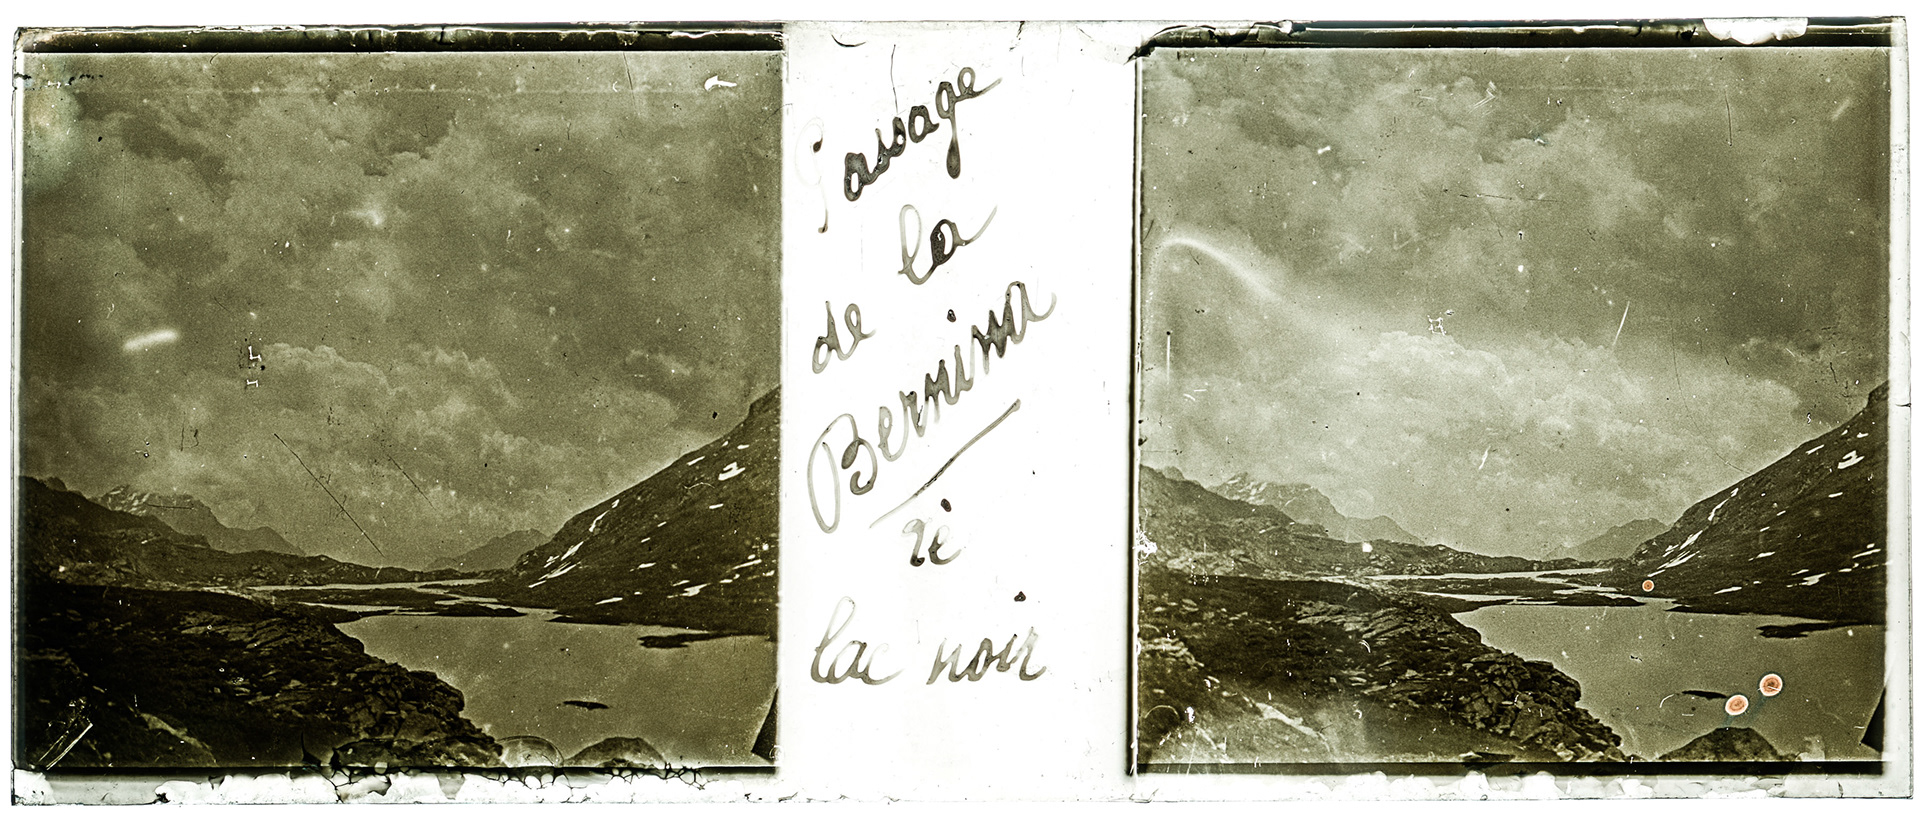 Passage
de la
Bernina
lac noir